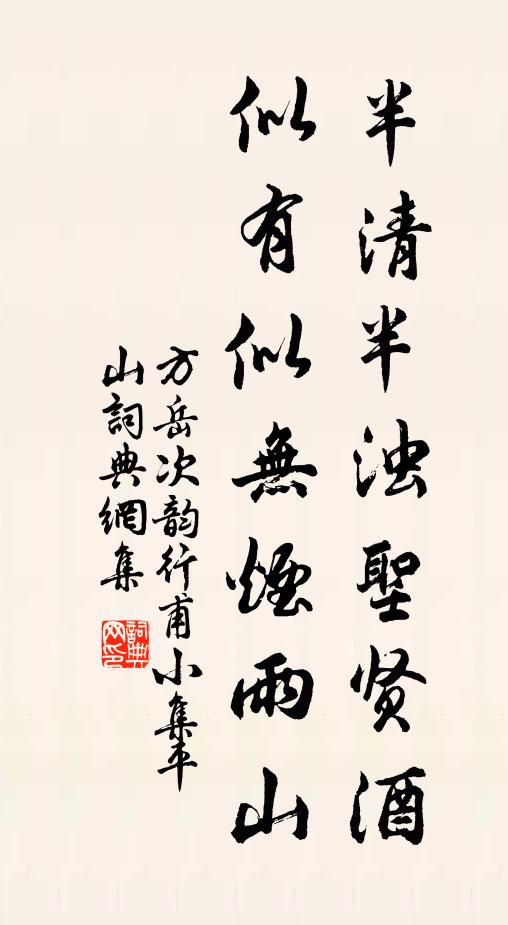 半清半浊聖贤酒
似有似無煙雨山
方岳次韵行甫小集平
山詞典網集
詞典
网印